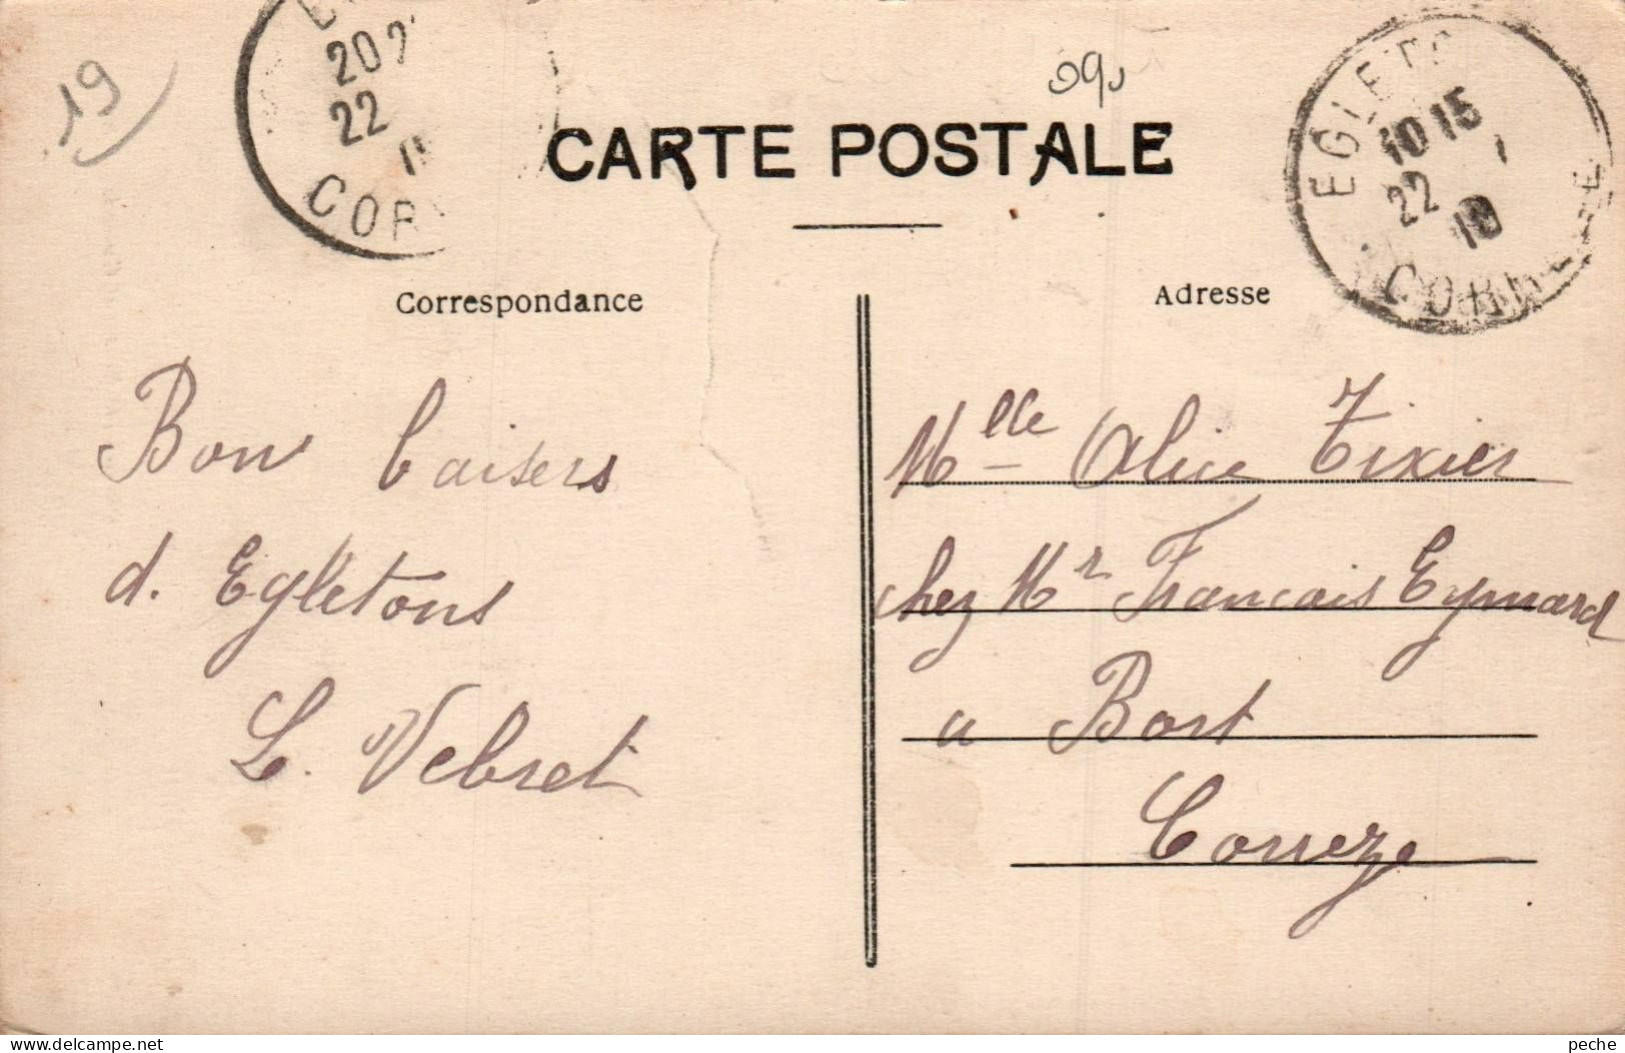 19
20
22
COR
CARTE POSTALE
EGLETO
10 15
22 1
10
CORR ZE
Correspondance
Adresse
Bon baisers
d. Egletons
L. Vebret
Mlle Alice Tixier
chez Mr Francois Eymard
a Bort
Correze
delcampe.net
peche